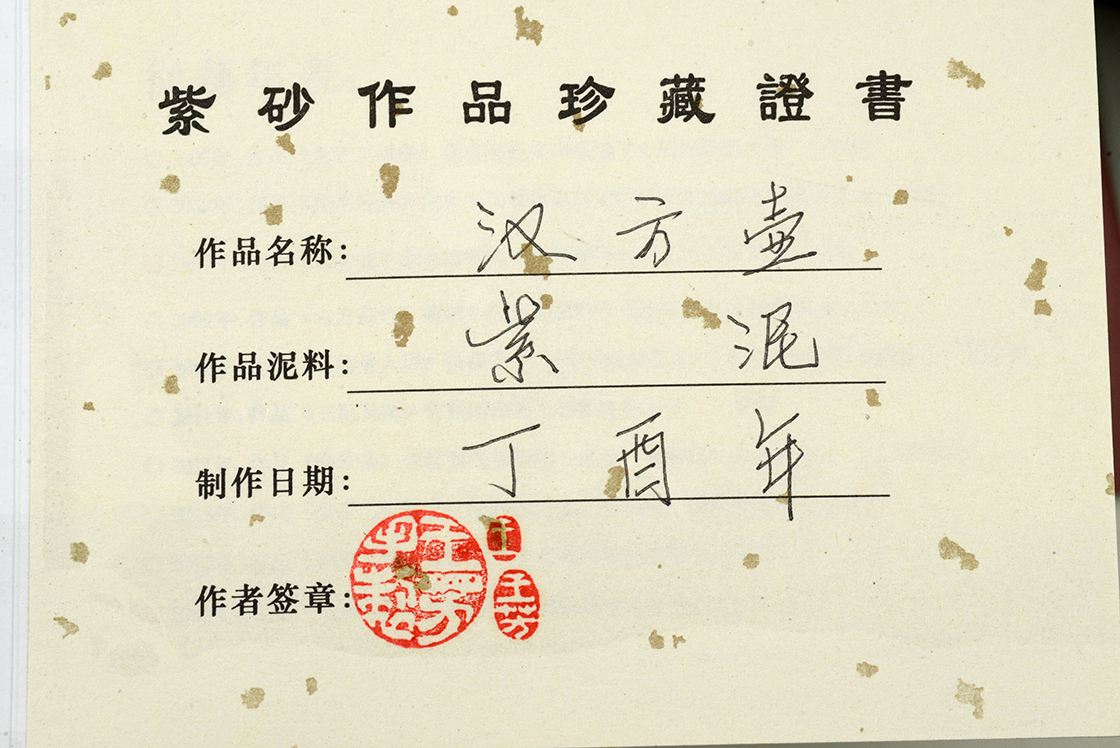 紫砂作品珍藏證書
作品名称：汉方壶
作品泥料：紫泥
制作日期：丁酉年
作者签章：